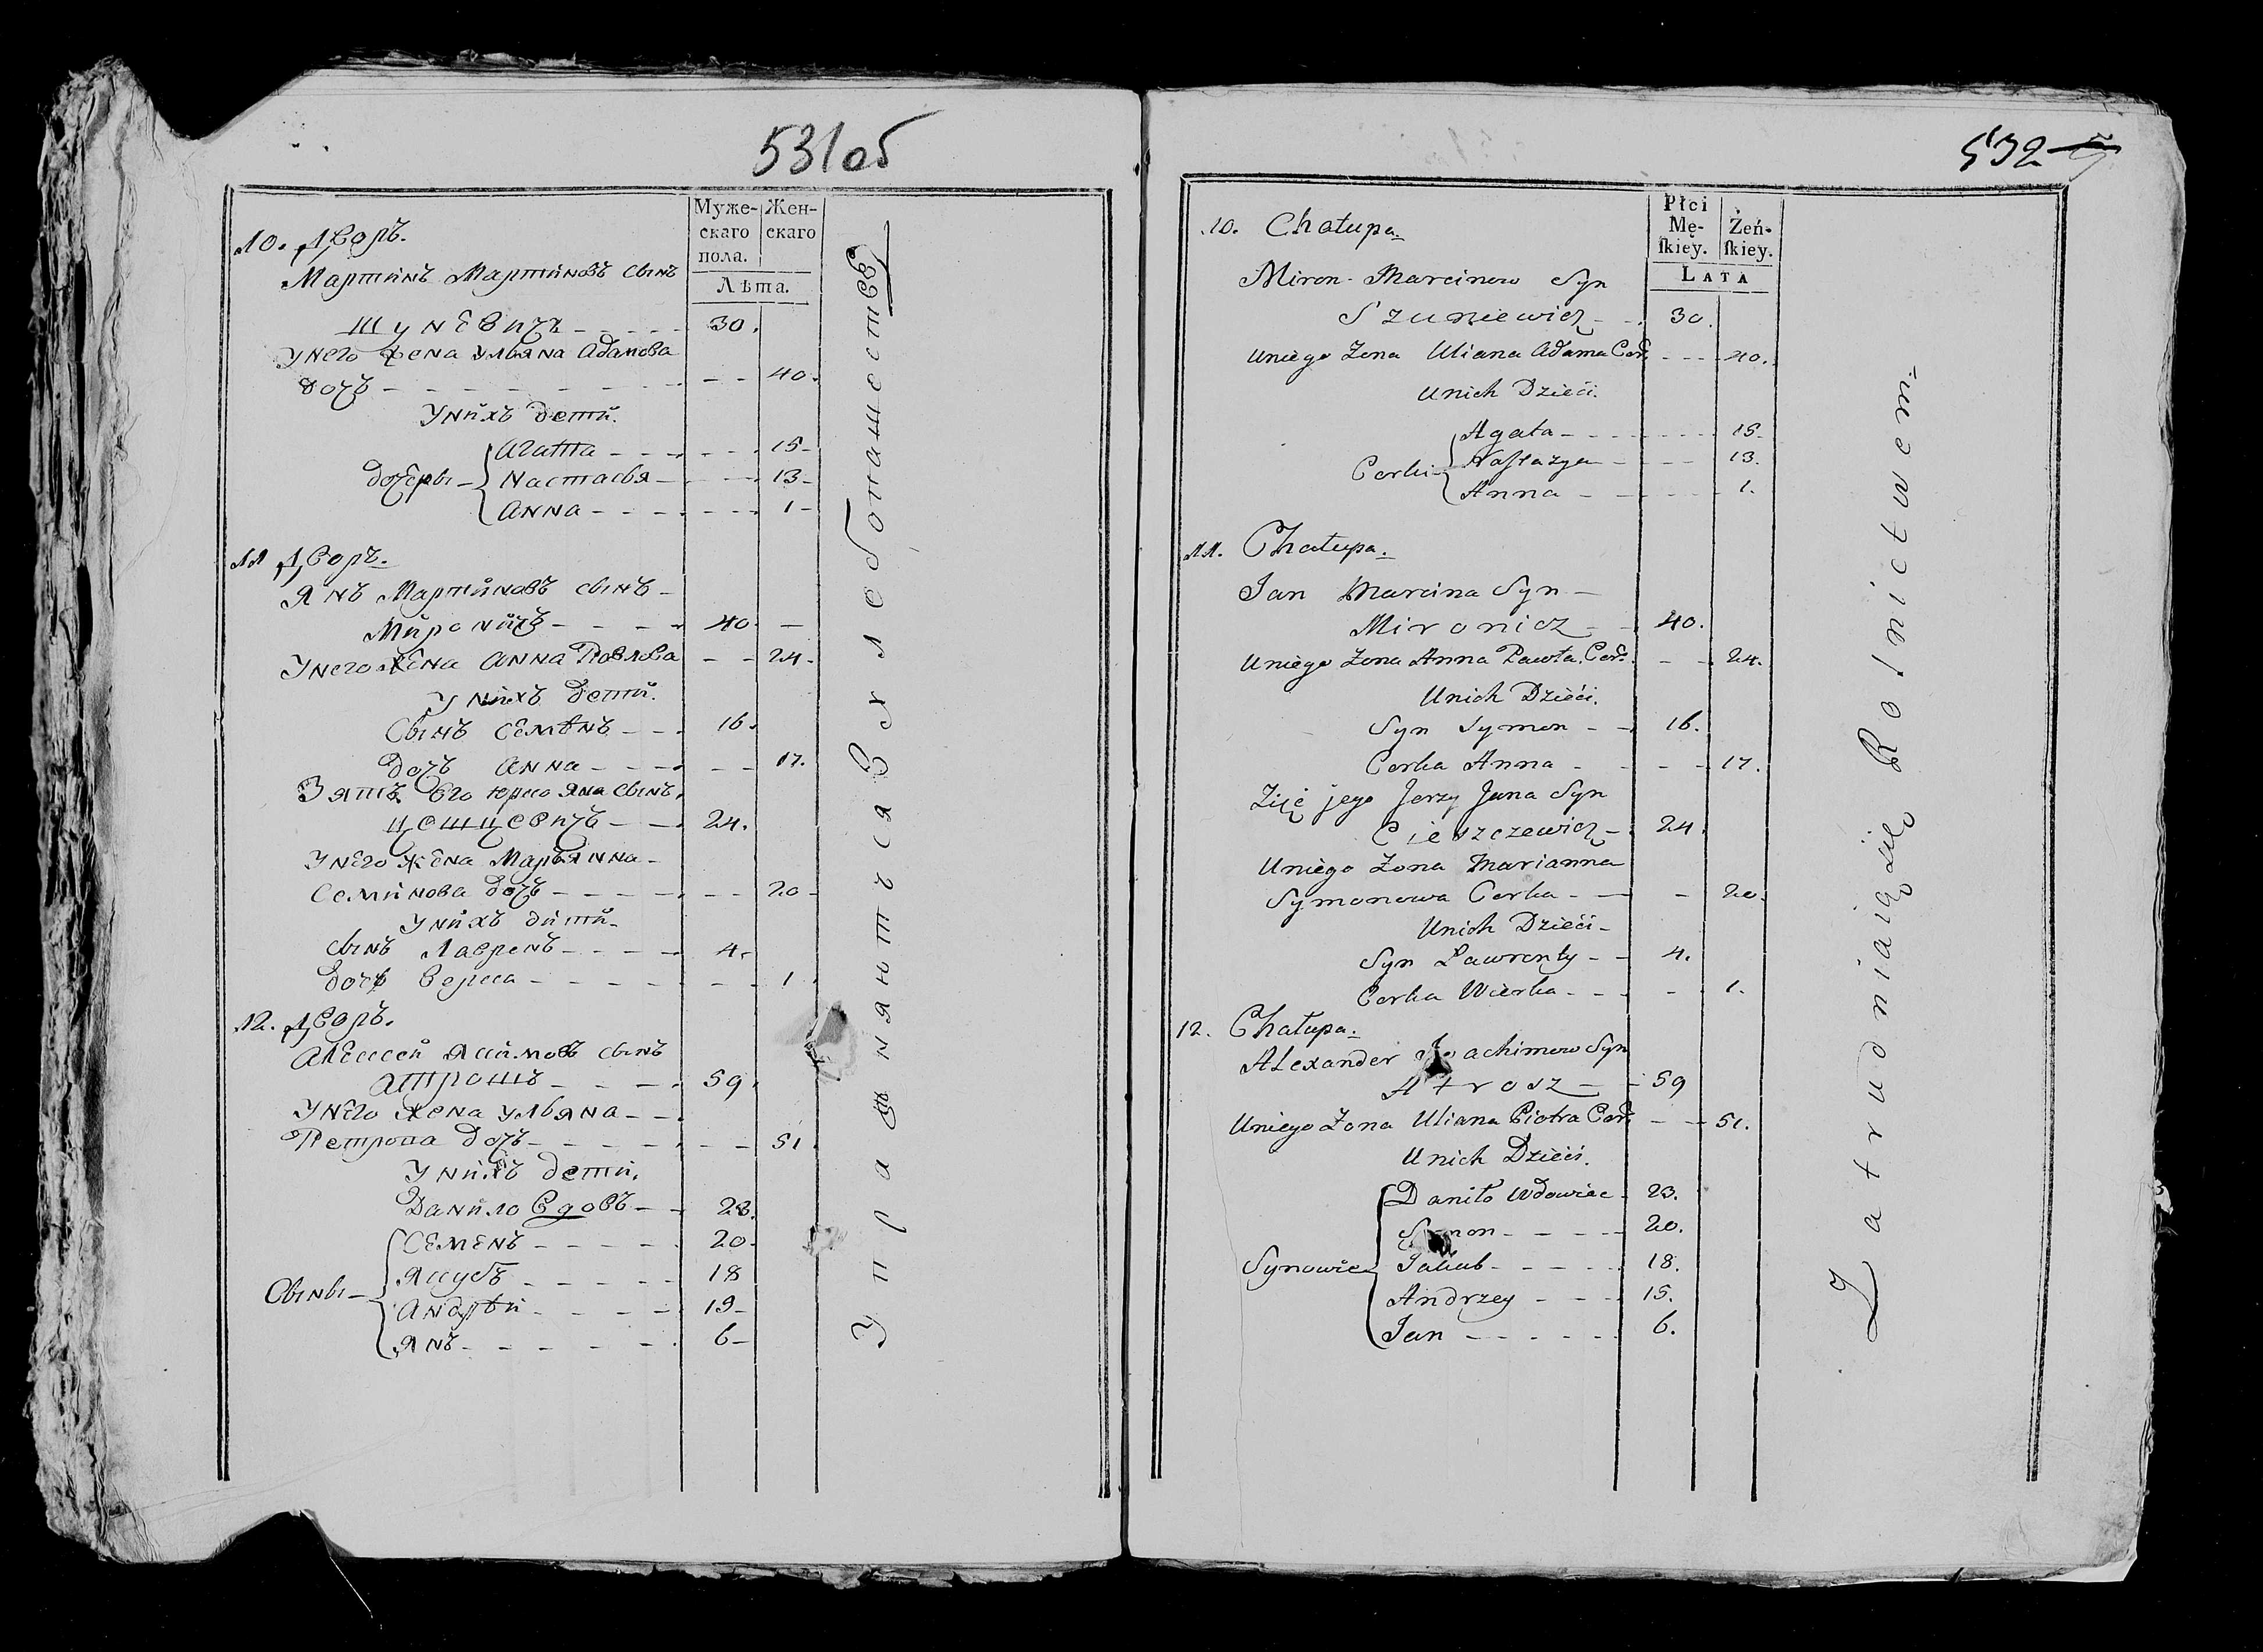 531 об
Муже-
скаго
пола.
Жен-
скаго
Лѣта.
10. Дворъ.
Мартинъ Мартиновъ сынъ
Шуневичъ - - - - 30.
У него жена Ульяна Адамова
дочь - - - - 40.
У нихъ дети.
дочеры
Агата - - - 15
Настасья - - - 13
Анна - - - 1
11 Дворъ.
Янъ Мартиновъ сынъ
Мироничъ - - - - 40
У него жена Анна Павлова - - 24
У нихъ дети.
Сынъ Семенъ - - - 16.
дочь Анна - - - - 17.
Зять его Юрко Яна сынъ
Цешцевичъ - - - 24.
У него жена Марьянна
Семинова дочь - - - - 20
У нихъ дити
сынъ Лавренъ - - - - 4
дочь Верка - - - - 1
12. Дворъ.
Алексей Якимовъ сынъ
Атрошъ - - - - 59.
У него жена Ульяна - -
Петрова дочь - - - - 51
У нихъ дети.
Данило Вдовъ - - 23.
Сыны
Семенъ - - - - 20
Якубъ - - - - 18
Андрѣй - - - - 19
Янъ - - - - 6
Упражняются в хлебопашестве
532
Płci
Mę-
skiey.
Żeń-
skiey.
LATA
10. Chałupa.
Miron Marcinow Syn
Szuniewicz - - 30.
Uniego Zona Uliana Adama Cor. - - - 40.
Unich Dzieci.
Corki
Agata - - - - 15.
Nastazya - - - 13.
Anna - - - - 1.
11. Chałupa.
Jan Marcina Syn -
Mironicz - - 40.
Uniego Zona Anna Pawła Cor. - - 24.
Unich Dzieci.
Syn Symon - - 16.
Corka Anna - - - - 17.
Zięć jego Jerzy Jana Syn
Cieszczewicz - 24
Uniego Zona Marianna
Symonowa Corka - - - 20.
Unich Dzieci -
Syn Lawrenty - - 4.
Corka Wierka - - - - 1.
12. Chałupa.
Alexander Joachimow Syn
Atrosz - - 59
Uniego Zona Uliana Piotra Cor. - - 51.
Unich Dzieci.
Synowie
Daniło Wdowiec - 23.
Symon - - - - 20.
Jakub - - - - 18.
Andrzey - - - 15.
Jan - - - - - 6.
Zatrudniaią się Rolnictwem